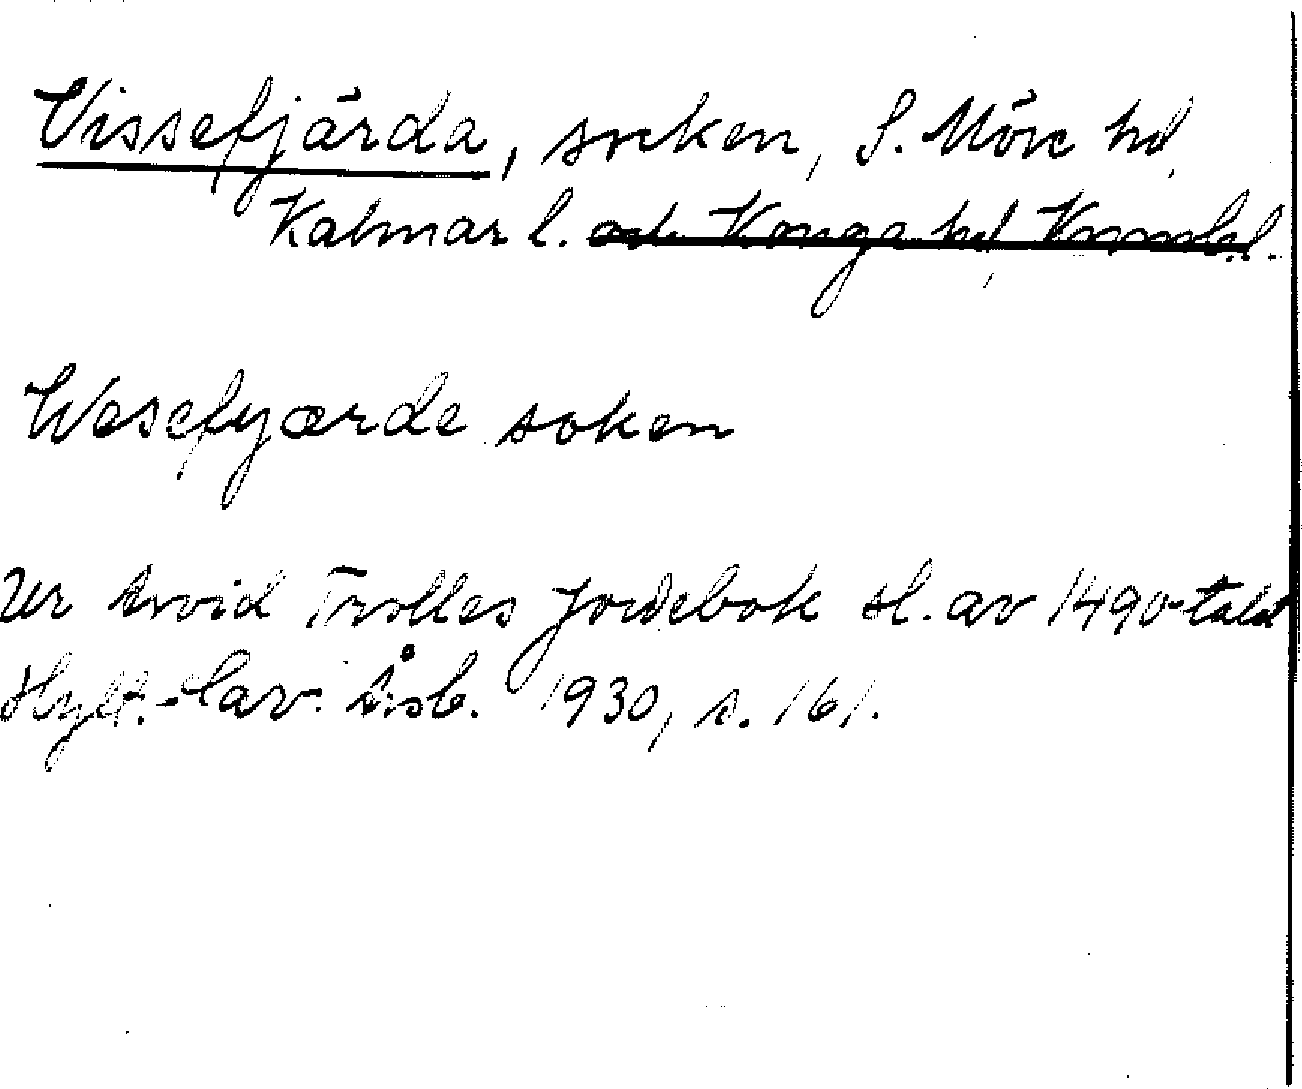 Vissefjärda, socken, S. Möre hd,
Kalmar l. och Konga hd, Kronob.l.
Wesefyærde soken
Ur Arvid Trolles Jordebok sl. av 1490-talet
Hylt.-Cav. Årsb. 1930, s. 161.